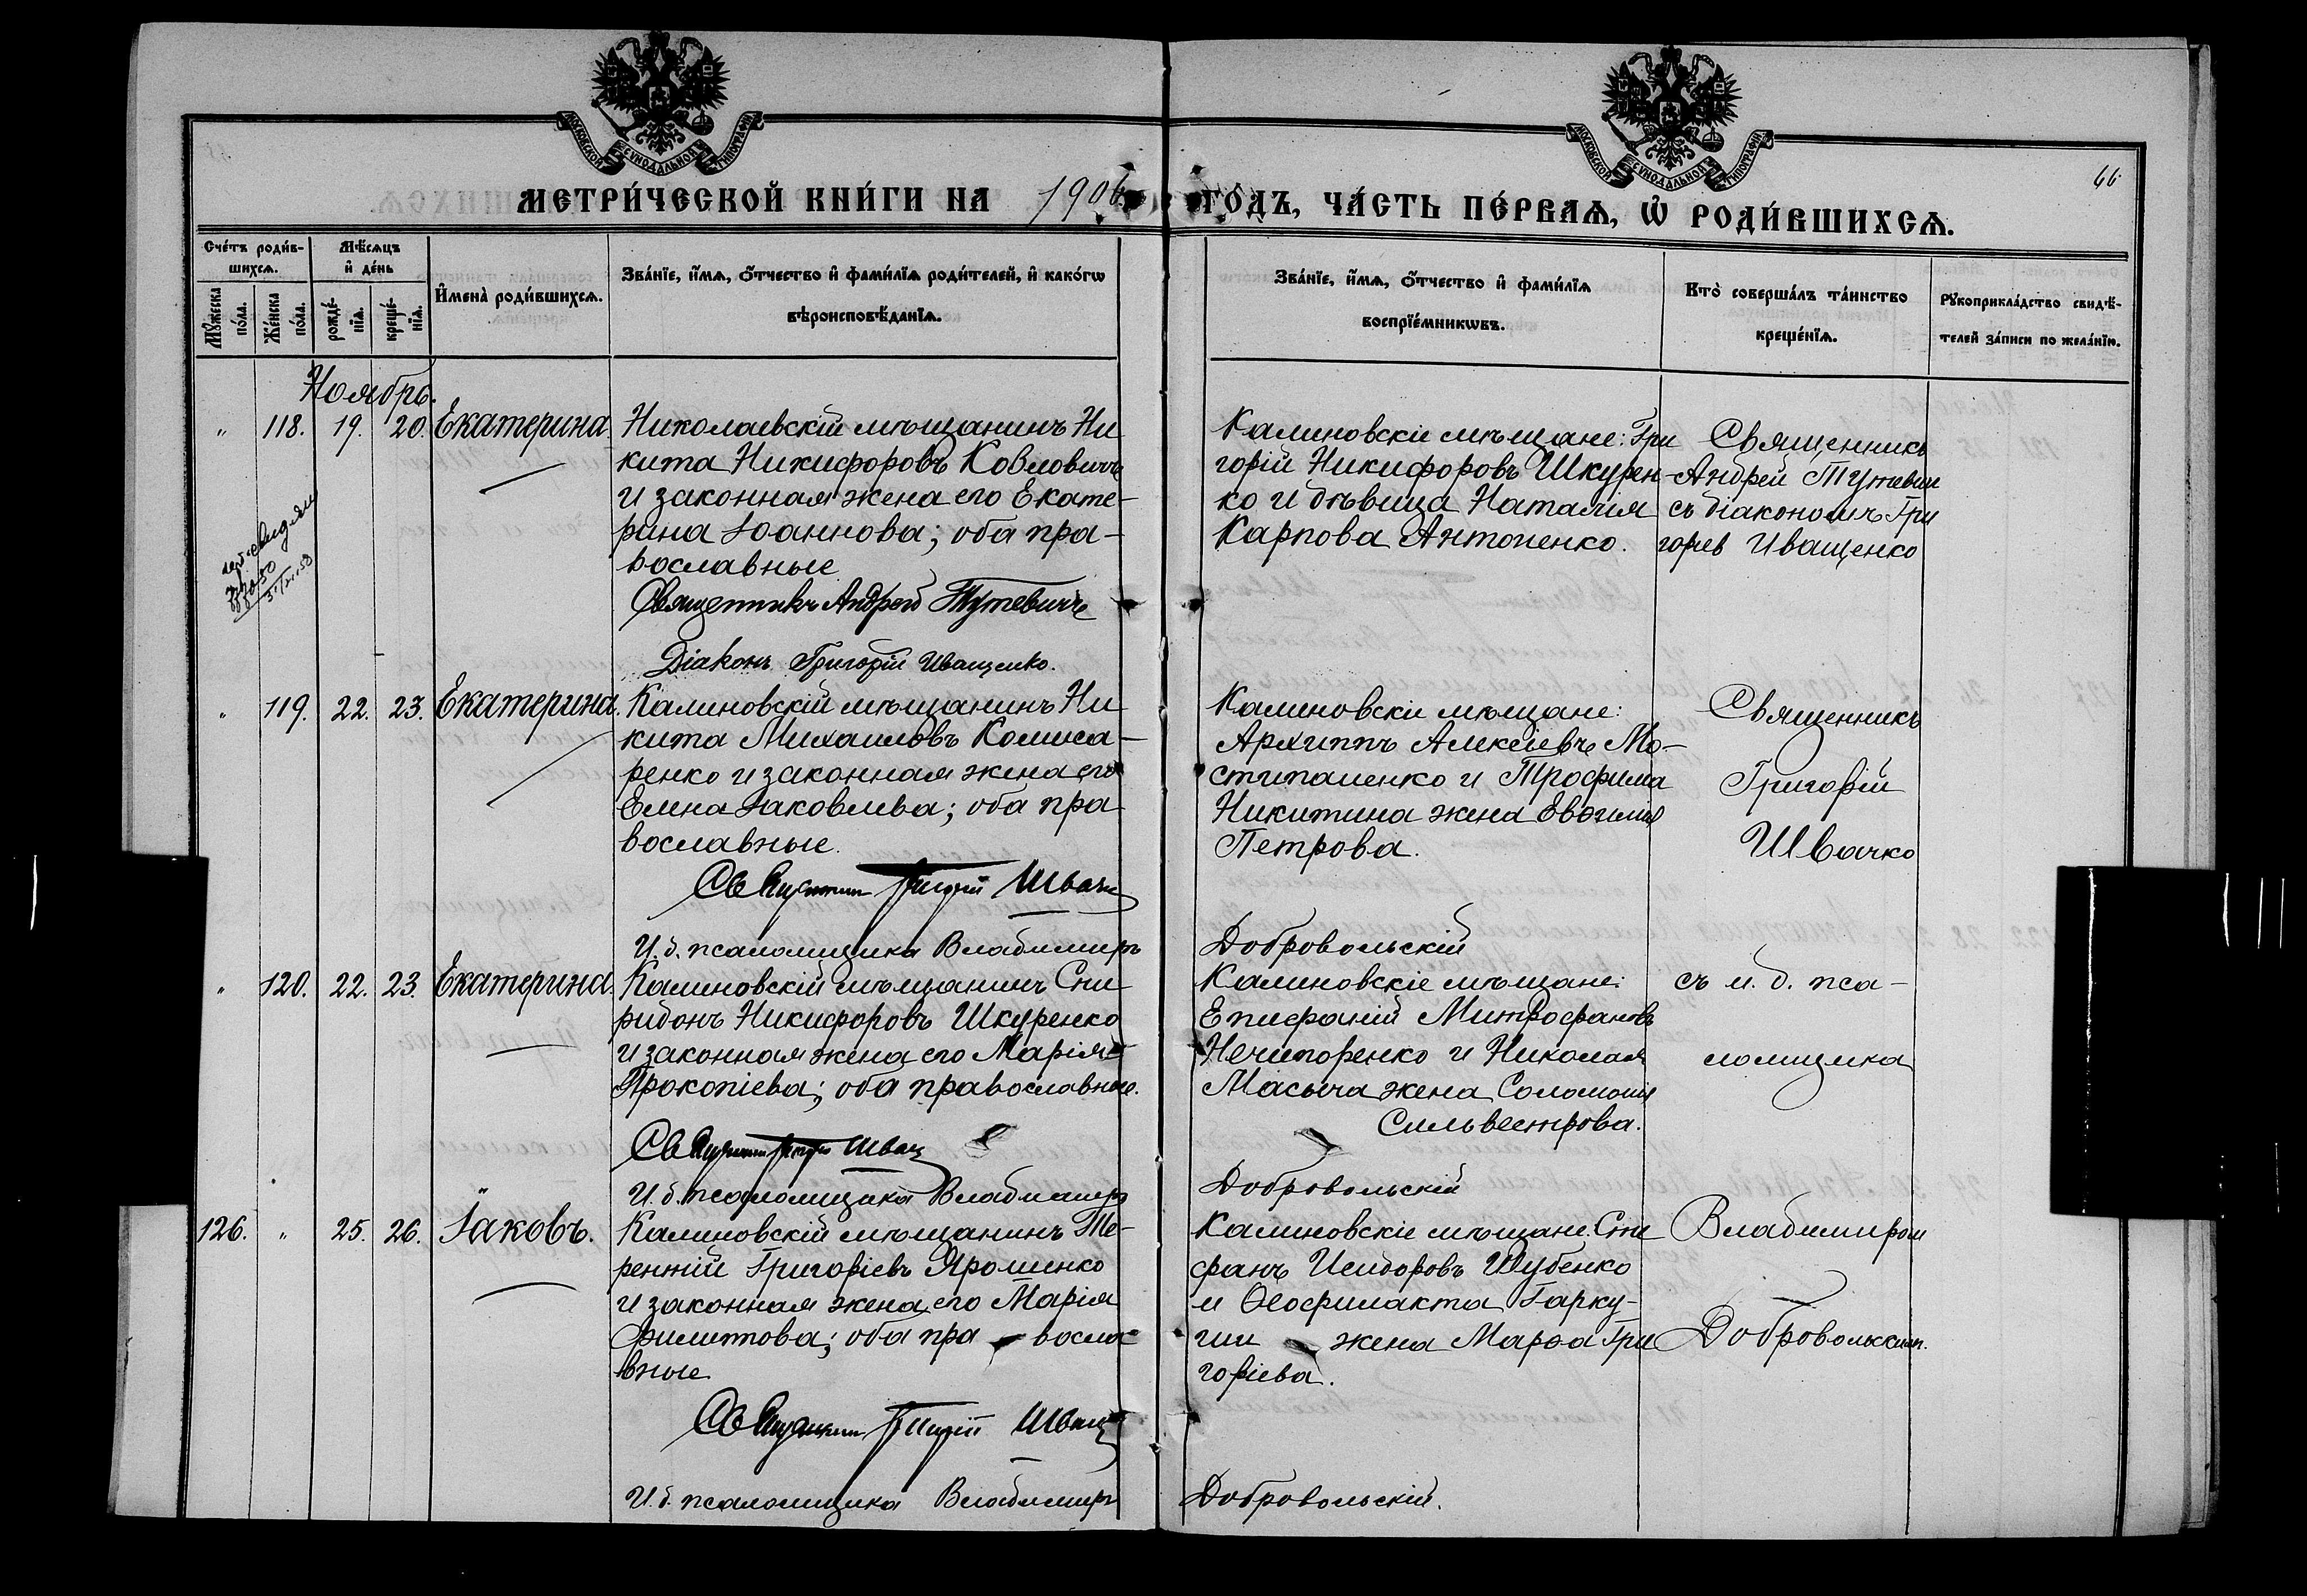 МОСКОВСКОЙ СУНОДАЛЬНОЙ ТИПОГРАФИИ
МОСКОВСКОЙ СУНОДАЛЬНОЙ ТИПОГРАФИИ
66.
МЕТРИ́ЧЕСКОЙ КНИ́ГИ НА 1906 ГО́ДЪ, ЧА́СТЬ ПЕ́РВАѦ, Ѡ҆ РОДИ́ВШИХСѦ.
Сче́тъ роди́в-
шихсѧ.
Мꙋ́жеска по́ла.
Же́нска по́ла.
Мѣ́сѧцъ
и҆ де́нь
рожде́-
нїѧ.
креще́-
нїѧ.
И҆мена̀ роди́вшихсѧ.
Зва́нїе, и҆́мѧ, ѻ҆́тчество и҆ фами́лїѧ роди́телей, и҆ како́гѡ
вѣроисповѣ́данїѧ.
Зва́нїе, и҆́мѧ, ѻ҆́тчество и҆ фами́лїѧ
воспрїе́мникѡвъ.
Кто̀ соверша́лъ та́инство
креще́нїѧ.
Рꙋкоприкла́дство свидѣ́-
телей за́писи по жела́нїю.
Ноябрь.
" 118. 19. 20. Екатерина.
Николаевскій мѣщанинъ Ни
кита Никифоровъ
и законная жена его Екате-
рина Іоаннова; оба пра-
вославные
Священникъ Андрей Тутевичъ
Діаконъ Григорій Иващенко.
Калиновскіе мѣщане: Гри
горій Никифоровъ Шкурен-
ко и дѣвица Наталія
Карпова Антоненко.
Священникъ
Андрей Тутевич
съ діакономъ Гри
горіев Иващенко
" 119. 22. 23. Екатерина.
Калиновскій мѣщанинъ Ни
кита Михаиловъ Комиса-
ренко и законная жена его
Елена Іаковлева; оба пра
вославные.
Священникъ Григорій Швачко
И. д. псаломщика Владимиръ Добровольскій
Калиновскіе мѣщане:
Архиппъ Алексіевъ Мо-
и Трофима
Никитина жена Евфимія
Петрова.
Священникъ
Григорій
Швачко
" 120. 22. 23. Екатерина.
Калиновскій мѣщанинъ Спи
ридонъ Никифоровъ Шкуренко
и законная жена его Марія
Прокопіева; оба православные.
Священникъ Григорій Швачко
И. д. псаломщика Владимиръ Добровольскій
Калиновскіе мѣщане:
Епифаній Митрофановъ
Нечипоренко и Николая
Масыча жена Соломонія
Сильвестрова.
съ и. д. пса-
ломщика
126. " 25. 26. Іаковъ.
Калиновскій мѣщанинъ Те-
рентій Григоріевъ Яроменко
и законная жена его Марія
Филиппова; оба пра восла
вные
Священникъ Григорій Швачко
И. д. псаломщика Владимиръ Добровольскій.
Калиновскіе мѣщане: Сте
фанъ Исидоровъ Шубенко
и Ѳеофилакта Гарку-
ши жена Марѳа Гри
горіева.
Владимиром
Добровольскимъ.